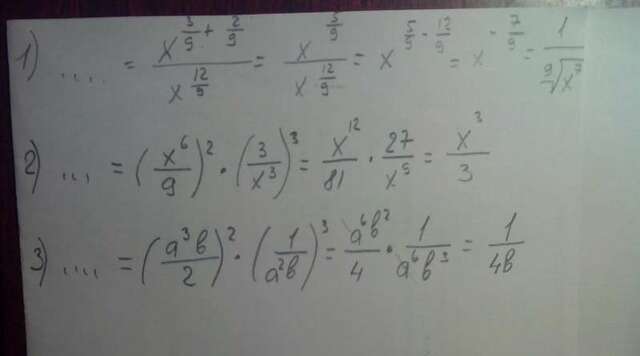 1) .... = x^(3/9 + 2/9) / x^(12/9) = x^(5/9) / x^(12/9) = x^(5/9 - 12/9) = x^(-7/9) = 1 / ⁹√x⁷
2) ... = (x⁶/9)² · (3/x³)³ = x¹²/81 · 27/x⁹ = x³/3
3) .... = (a³b/2)² · (1/a²b)³ = a⁶b²/4 · 1/a⁶b³ = 1/4b